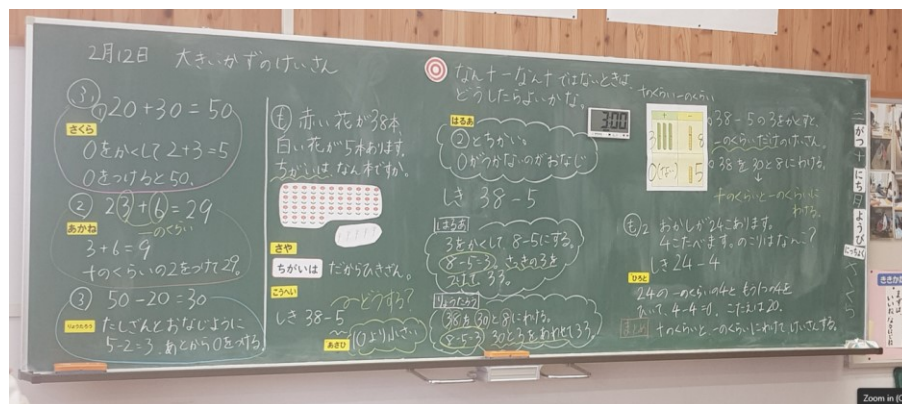 2月12日 大きいかずのけいさん
③
① 20+30=50
さくら
0をかくして2+3=5
0をつけると50.
② 23+6=29
一のくらい
あかね
3+6=9
十のくらいの2をつけて29.
③ 50-20=30
りょうたろう
たしざんとおなじように
5-2=3. あとから0をつける.
も 赤い花が38本
白い花が5本あります。
ちがいは、なん本ですか。
さや
ちがいは だからひきざん。
こうへい
しき 38-5
どうする?
あさひ
10より小さい
なん十-なん十ではないときは、
どうしたらよいかな。
はるあ
②とちがい。
0がつかないのがおなじ
3:00
しき 38-5
はるあ
3をかくして、8-5にする。
8-5=3. さっきの3を
たして 33.
りょうたろう
38を30と8にわける。
8-5=3 30と3をあわせて33.
十のくらい 一のくらい
十 一
3 8
0(なし) 5
38-5の3をかくすと、
一のくらいだけのけいさん。
38を30と8にわける。
↓
十のくらいと一のくらいに
わける。
も2 おかしが24こあります。
4こたべます。のこりはなんこ?
しき24-4
ひろと
24の一のくらいの4ともう1つの4を
ひいて、4-4=0. こたえは20.
まとめ 十のくらいと一のくらいにわけてけいさんする。
二
がつ
十
にち
ようび
にっちょく
さくら
Zoom in (